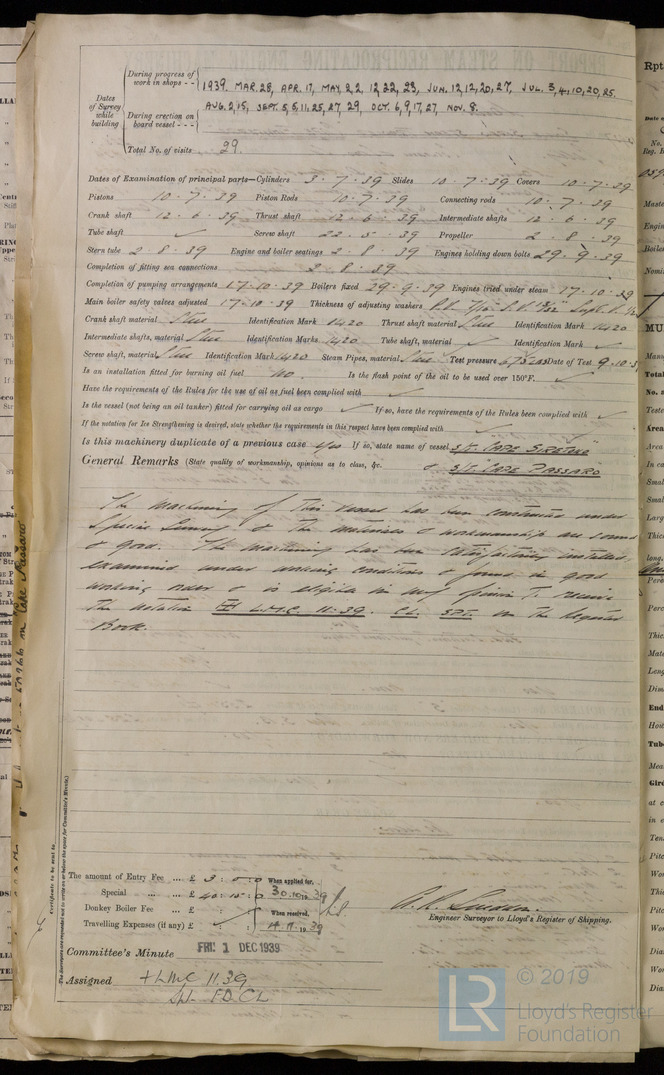 During progress of work in shops - - 1939. MAR. 28, APR. 17, MAY. 2, 2, 12, 22, 23, JUN. 12, 12, 20, 27, JUL. 3, 4, 10, 20, 25,
AUG. 2, 15, SEPT. 5, 5, 11, 25, 27, 29, OCT. 6, 9, 17, 27, NOV. 8.
Dates of Survey while building
During erection on board vessel - - -
Total No. of visits 29.
Dates of Examination of principal parts—Cylinders 3 · 7 · 39 Slides 10 · 7 · 39 Covers 10 · 7 · 39
Pistons 10 · 7 · 39 Piston Rods 10 · 7 · 39 Connecting rods 10 · 7 · 39
Crank shaft 12 · 6 · 39 Thrust shaft 12 · 6 · 39 Intermediate shafts 12 · 6 · 39
Tube shaft ✓ Screw shaft 22 · 5 · 39 Propeller 2 · 8 · 39
Stern tube 2 · 8 · 39 Engine and boiler seatings 2 · 8 · 39 Engines holding down bolts 29 · 9 · 39
Completion of fitting sea connections 2 · 8 · 39
Completion of pumping arrangements 17 · 10 · 39 Boilers fixed 29 · 9 · 39 Engines tried under steam 17 · 10 · 39
Main boiler safety valves adjusted 17 · 10 · 39 Thickness of adjusting washers
Crank shaft material Steel Identification Mark 1420 Thrust shaft material Steel Identification Mark 1420
Intermediate shafts, material Steel Identification Marks 1420 Tube shaft, material ✓ Identification Mark ✓
Screw shaft, material Steel Identification Mark 1420 Steam Pipes, material Steel Test pressure Date of Test 9.10.3
Is an installation fitted for burning oil fuel No Is the flash point of the oil to be used over 150°F. ✓
Have the requirements of the Rules for the use of oil as fuel been complied with ✓
Is the vessel (not being an oil tanker) fitted for carrying oil as cargo ✓ If so, have the requirements of the Rules been complied with ✓
If the notation for Ice Strengthening is desired, state whether the requirements in this respect have been complied with ✓
Is this machinery duplicate of a previous case Yes If so, state name of vessel S/T. "CAPE
General Remarks (State quality of workmanship, opinions as to class, &c. & S/T. CAPE PASSARO
The machinery of this vessel has been constructed under
Special Survey & the materials & workmanship are sound
& good. The machinery has been satisfactorily installed
examined under working conditions & found in good
working order & is eligible in my opinion to receive
the notation L.M.C. 11·39. CL. SPT. in the Register
Book.
in Cape Passaro
Certificate to be sent to
The Surveyors are requested not to write on or below the space for Committee's Minute.
The amount of Entry Fee ... £ 3 : 0 : 0 When applied for,
Special ... ... £ 40 : 15 : 0 30.10.1939
Donkey Boiler Fee ... £ When received,
Travelling Expenses (if any) £ 14.11.1939
Engineer Surveyor to Lloyd's Register of Shipping.
Committee's Minute FRI 1 DEC 1939
Assigned + LMC 11.39
Spt. FD. CL
© 2019
LR
Lloyd's Register
Foundation